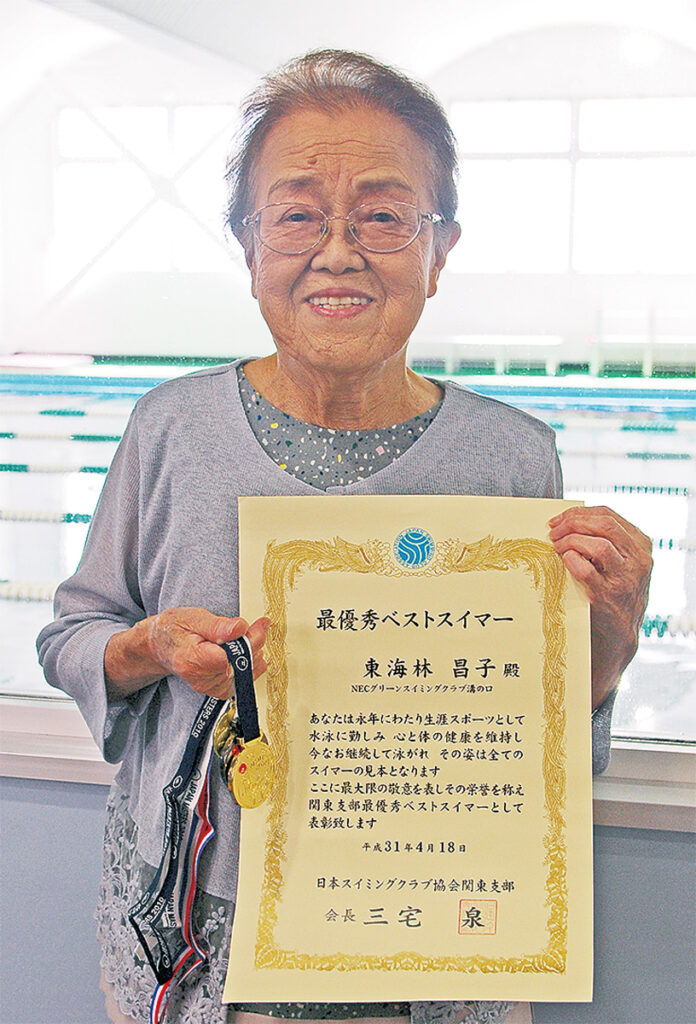 最優秀ベストスイマー
東海林 昌子 殿
NECグリーンスイミングクラブ溝の口
あなたは永年にわたり生涯スポーツとして
水泳に勤しみ 心と体の健康を維持し
今なお継続して泳がれ その姿は全ての
スイマーの見本となります
ここに最大限の敬意を表しその栄誉を称え
関東支部最優秀ベストスイマーとして
表彰致します
平成31年4月18日
日本スイミングクラブ協会関東支部
会長 三宅 泉